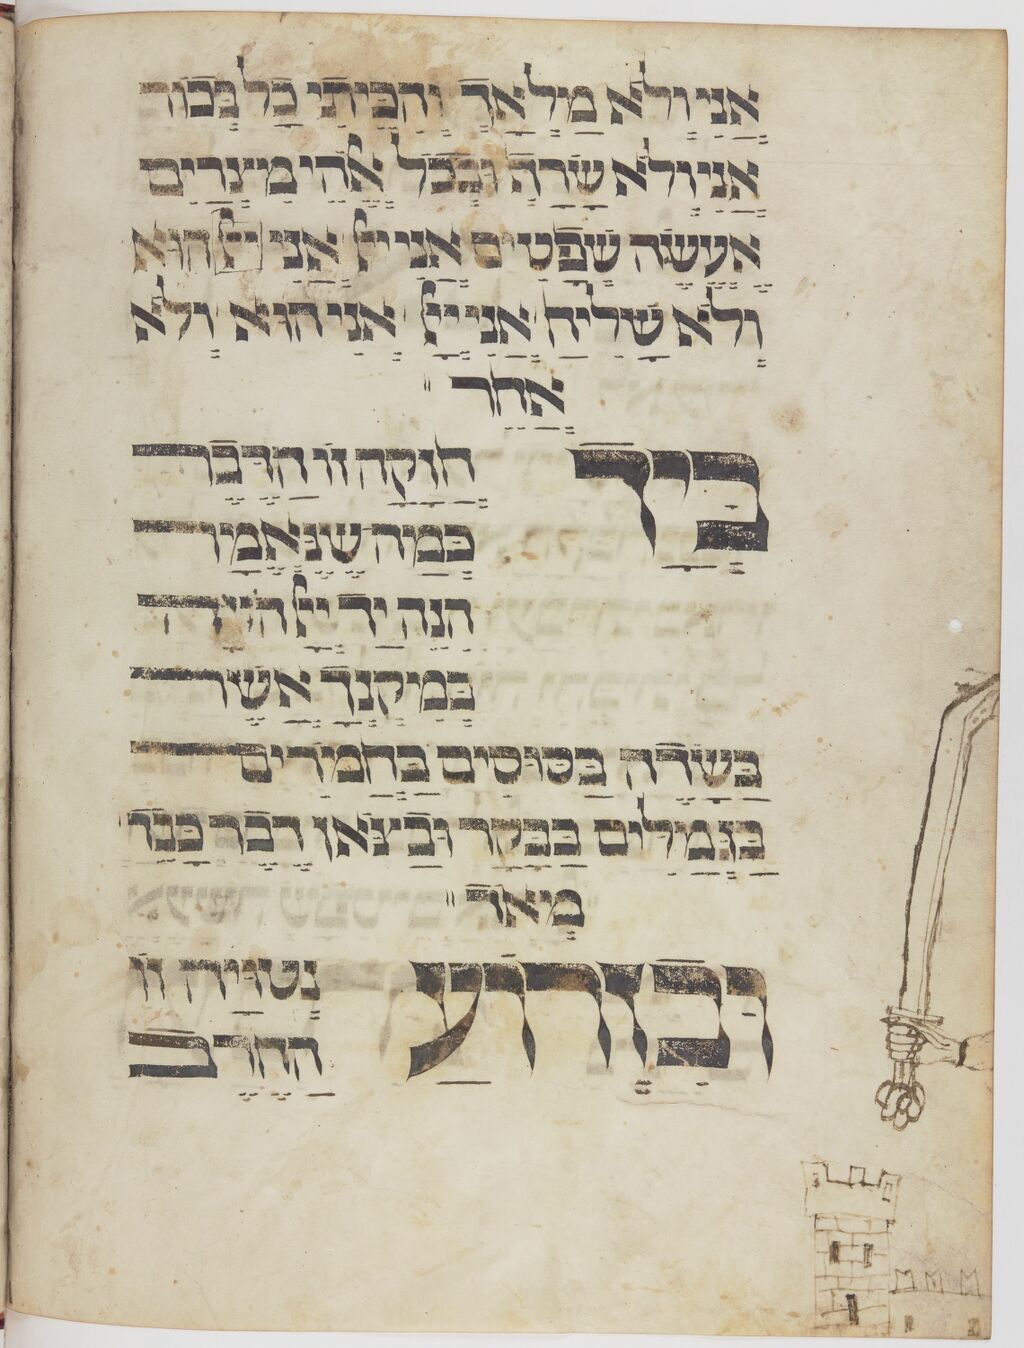 אֲנִי וְלֹא מַלְאָךְ וְהִכֵּיתִי כָל בְּכוֹר
אֲנִי וְלֹא שָׂרָף וּבְכָל אֱלֹהֵי מִצְרַיִם
אֶעֱשֶׂה שְׁפָטִים אֲנִי יְיָ אֲנִי יְיָ הוּא
וְלֹא שָׁלִיחַ אֲנִי יְיָ אֲנִי הוּא וְלֹא
אַחֵר
בְּיָד
חֲזָקָה זוֹ הַדֶּבֶר
כְּמָה שֶׁנֶּאֱמַר
הִנֵּה יַד יְיָ הוֹיָה
בְּמִקְנְךָ אֲשֶׁר
בַּשָּׂדֶה בַּסּוּסִים בַּחֲמֹרִים
בַּגְּמַלִּים בַּבָּקָר וּבַצֹּאן דֶּבֶר כָּבֵד
מְאֹד
וּבִזְרוֹעַ
נְטוּיָה זוֹ
הַחֶרֶב